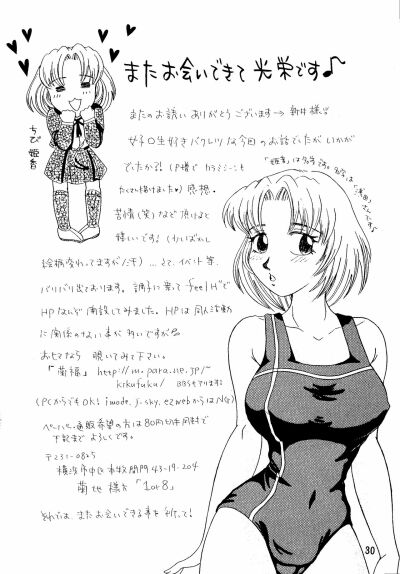 またお会いできて 光栄です♪
ちび姫香
またのお誘い ありがとう ございます→ 新井様!!
女子〇生好き バクレツ な今回のお話でしたが いかが
でしたか?! (P様で
たくさん描けました♥) 感想、
苦情(笑)など 頂けると
嬉しいです!
絵柄変わってますが
… さて、イベント等
バリバリ出ております。調子に乗って feel H"で
HPなんぞ 開設してみました。HPは 同人活動
に関係のない事が 多いですが
おヒマなら 覗いてみて下さい。
『菊福』 http://m.para.ne.jp/~
kikufuku/ BBSもアリます
(PCからでもOK! imode, j-sky, ezwebからはNG)
ペーパー、通販希望の方は 80円切手同封で
下記まで よろしくです。
〒231-0825
横浜市中区本牧間門 43-19-204
菊地 様方 「1or8」
それでは、またお会いできる事を 祈って!
30